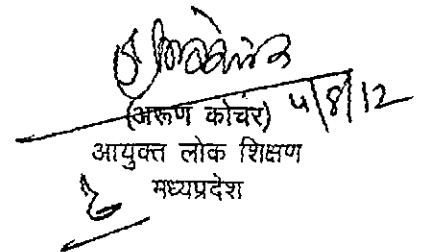 (अरूण कोचर) 4/8/12
आयुक्त लोक शिक्षण
मध्यप्रदेश